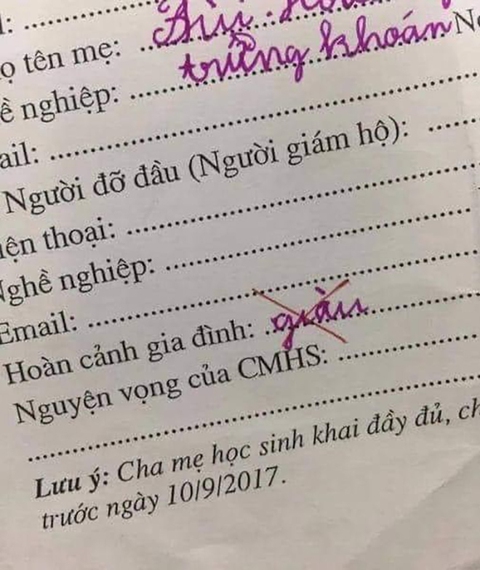 ọ tên mẹ:
ề nghiệp: trưởng khoán
ail:
Người đỡ đầu (Người giám hộ):
iện thoại:
Nghề nghiệp:
Email:
Hoàn cảnh gia đình: giàu
Nguyện vọng của CMHS:
Lưu ý: Cha mẹ học sinh khai đầy đủ, ch
trước ngày 10/9/2017.